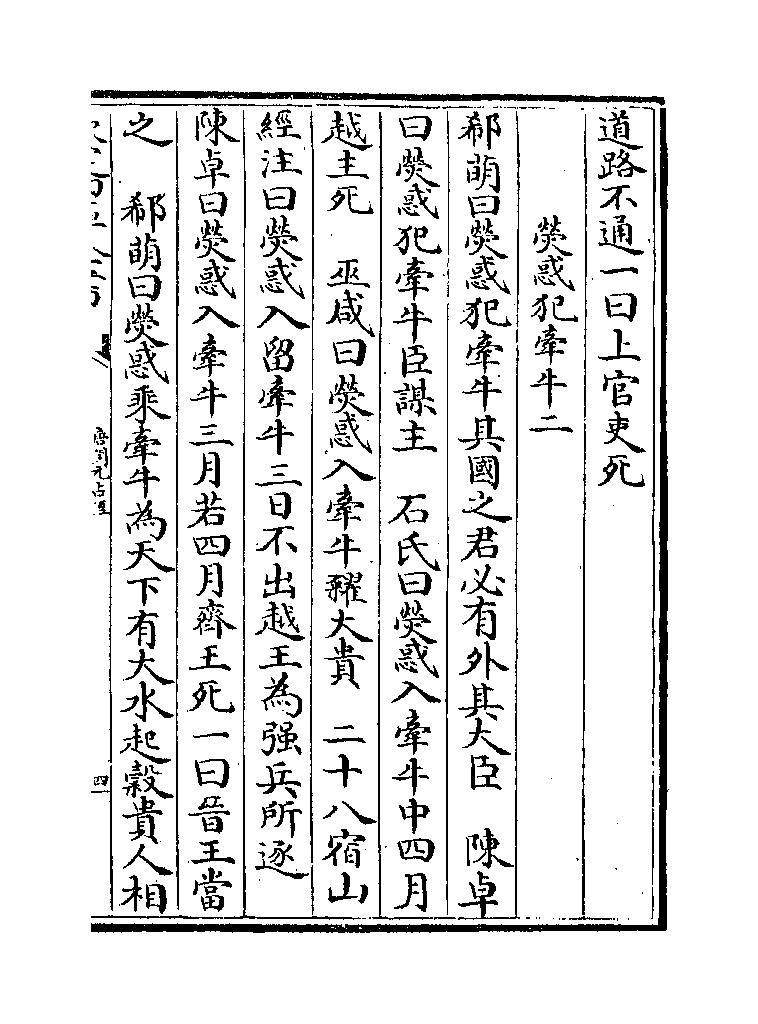 道路不通一曰上官吏死
熒惑犯牽牛二
郗萌曰熒惑犯牽牛其國之君必有外其大臣　陳卓
曰熒惑犯牽牛臣謀主　石氏曰熒惑入牽牛中四月
越主死　巫咸曰熒惑入牽牛糴大貴　二十八宿山
經注曰熒惑入留牽牛三日不出越王為强兵所逐
陳卓曰熒惑入牽牛三月若四月齊王死一曰晉王當
之　郗萌曰熒惑乘牽牛為天下有大水起穀貴人相
唐開元占經
四